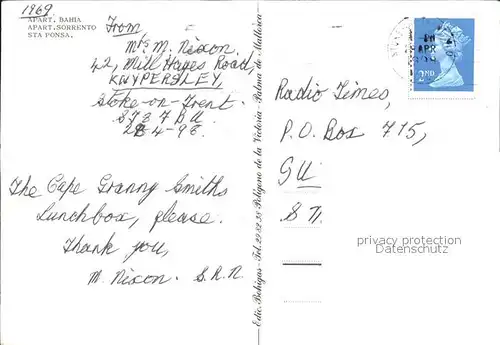 1969.
APART. BAHIA
APART. SORRENTO
STA PONSA.
From
Mrs M. Nixon,
42, Mill Hayes Road,
KNYPERSLEY,
Stoke-on-Trent.
ST8 7BU.
28-4-96.
The Cape Granny Smiths
Lunchbox, please.
Thank you,
M. Nixon. S.R.N.
Edic. Bohigas - Tel. 29 32 38 Polígono de la Victoria - Palma de Mallorca
2ND
Radio Times,
P.O. Box 715,
GU
privacy protection
Datenschutz